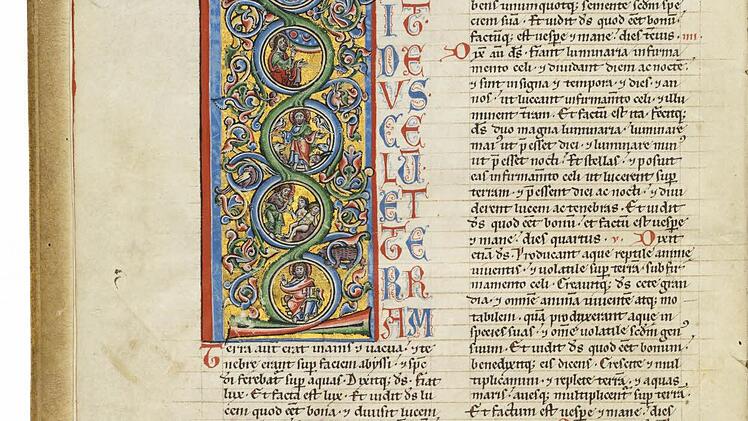 I T
D E
V S
C E
L U
E T
T E
R R
A M
Terra aut erat inanis ⁊ uacua · ⁊ te
nebre erant sup faciem abyssi · ⁊ sps
di ferebat sup aquas · Dixitq; ds · fiat
lux · Et facta est lux · Et uidit ds lu
cem quod eet bona · ⁊ diuisit lucem
bens unumquodq; sementē sedm spe
ciem suā · Et uidit ds quod eet bonū ·
factūq; est uespe ⁊ mane · dies tcius · iiii ·
Dix aū ds · Fiant luminaria infirma
mento celi · ⁊ diuidant diem ac noctē ·
⁊ sint insigna ⁊ tempora · ⁊ dies · ⁊ an
nos · ut luceant infirmamto celi · ⁊ illu
minent tram · Et factū est ita · Fecitq;
ds duo magna luminaria · luminare
mai ut pesset diei · ⁊ luminare min
ut pesset nocti · Et stellas · ⁊ posuit
eas infirmamto celi ut lucerent sup
terram · ⁊ pessent diei ac nocti · ⁊ diui
derent lucem ac tenebras · Et uidit
ds quod eet bonū · et factū est uespe
⁊ mane · dies quartus · v · Dixit
etiā ds · Producant aque reptile anime
uiuentis · ⁊ uolatile sup terrā · subfir
mamento celi · Creauitq; ds cete gran
dia · ⁊ omnē animā uiuentē atq; mo
tabilem · quā produxerant aque in
species suas · ⁊ omē uolatile sedm gen
suum · Et uidit ds quod eet bonum ·
benedixitq; eis dicens · Crescite ⁊ mul
tiplicamini · ⁊ replete terrā · ⁊ aquas
maris · auesq; multiplicent sup terrā ·
Et factum est uespe ⁊ mane · dies